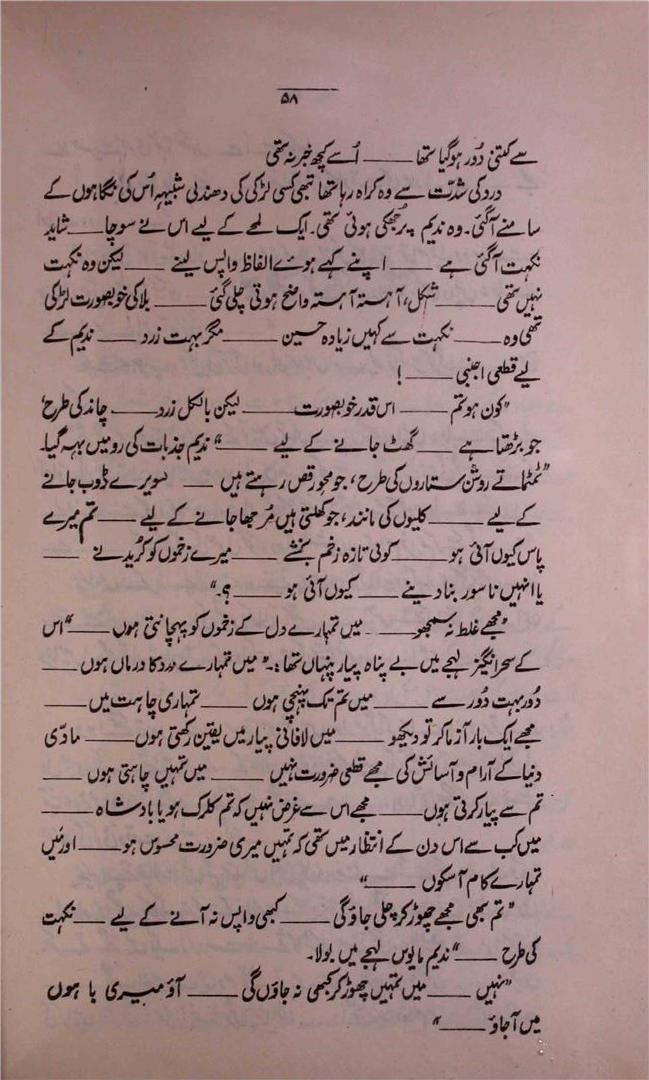 ۵۸
سے کتنی دُور ہو گیا تھا —— اُسے کچھ خبر نہ تھی
درد کی شدّت سے وہ کراہ رہا تھا تبھی کسی لڑکی کی دھندلی شبیہہ اُس کی نگاہوں کے
سامنے آگئی۔ وہ ندیم پر جھکی ہوئی تھی۔ ایک لمحے کے لیے اس نے سوچا —— شاید
نکہت آگئی ہے —— اپنے کہے ہوئے الفاظ واپس لینے —— لیکن وہ نکہت
نہیں تھی —— شکل، آہستہ آہستہ واضح ہوتی چلی گئی —— بلا کی خوبصورت لڑکی
تھی وہ —— نکہت سے کہیں زیادہ حسین —— مگر بہت زرد —— ندیم کے
لیے قطعی اجنبی —— !
"کون ہو تم —— اس قدر خوبصورت —— لیکن بالکل زرد —— چاند کی طرح،
جو بڑھتا ہے —— گھٹ جانے کے لیے ——" ندیم جذبات کی رو میں بہہ گیا۔
"ٹمٹماتے روشن ستاروں کی طرح، جو محوِ رقص رہتے ہیں —— سویرے ڈوب جانے
کے لیے —— کلیوں کی مانند، جو کھلتی ہیں مُرجھا جانے کے لیے —— تم میرے
پاس کیوں آئی ہو —— کوئی تازہ زخم بخشنے —— میرے زخموں کو کُریدنے ——
یا انہیں ناسور بنا دینے —— کیوں آئی ہو —— ؟۔"
"مجھے غلط نہ سمجھو —— میں تمہارے دل کے زخموں کو پہچانتی ہوں ——" اس
کے سحر انگیز لہجے میں بے پناہ پیار پنہاں تھا:۔ "میں تمہارے درد کا درماں ہوں ——
دُور بہت دُور سے —— میں تم تک پہنچی ہوں —— تمہاری چاہت میں ——
مجھے ایک بار آزما کر تو دیکھو —— میں لافانی پیار میں یقین رکھتی ہوں —— مادّی
دنیا کے آرام و آسائش کی مجھے قطعی ضرورت نہیں —— میں تمہیں چاہتی ہوں ——
تم سے پیار کرتی ہوں —— مجھے اس سے غرض نہیں کہ تم کلرک ہو یا بادشاہ ——
میں کب سے اس دن کے انتظار میں تھی کہ تمہیں میری ضرورت محسوس ہو —— اور مَیں
تمہارے کام آ سکوں ——"
"تم بھی مجھے چھوڑ کر چلی جاؤ گی —— کبھی واپس نہ آنے کے لیے —— نکہت
کی طرح ——" ندیم مایوس لہجے میں بولا۔
"نہیں —— میں تمہیں چھوڑ کر کبھی نہ جاؤں گی —— آؤ میری باہوں
میں آجاؤ ——"